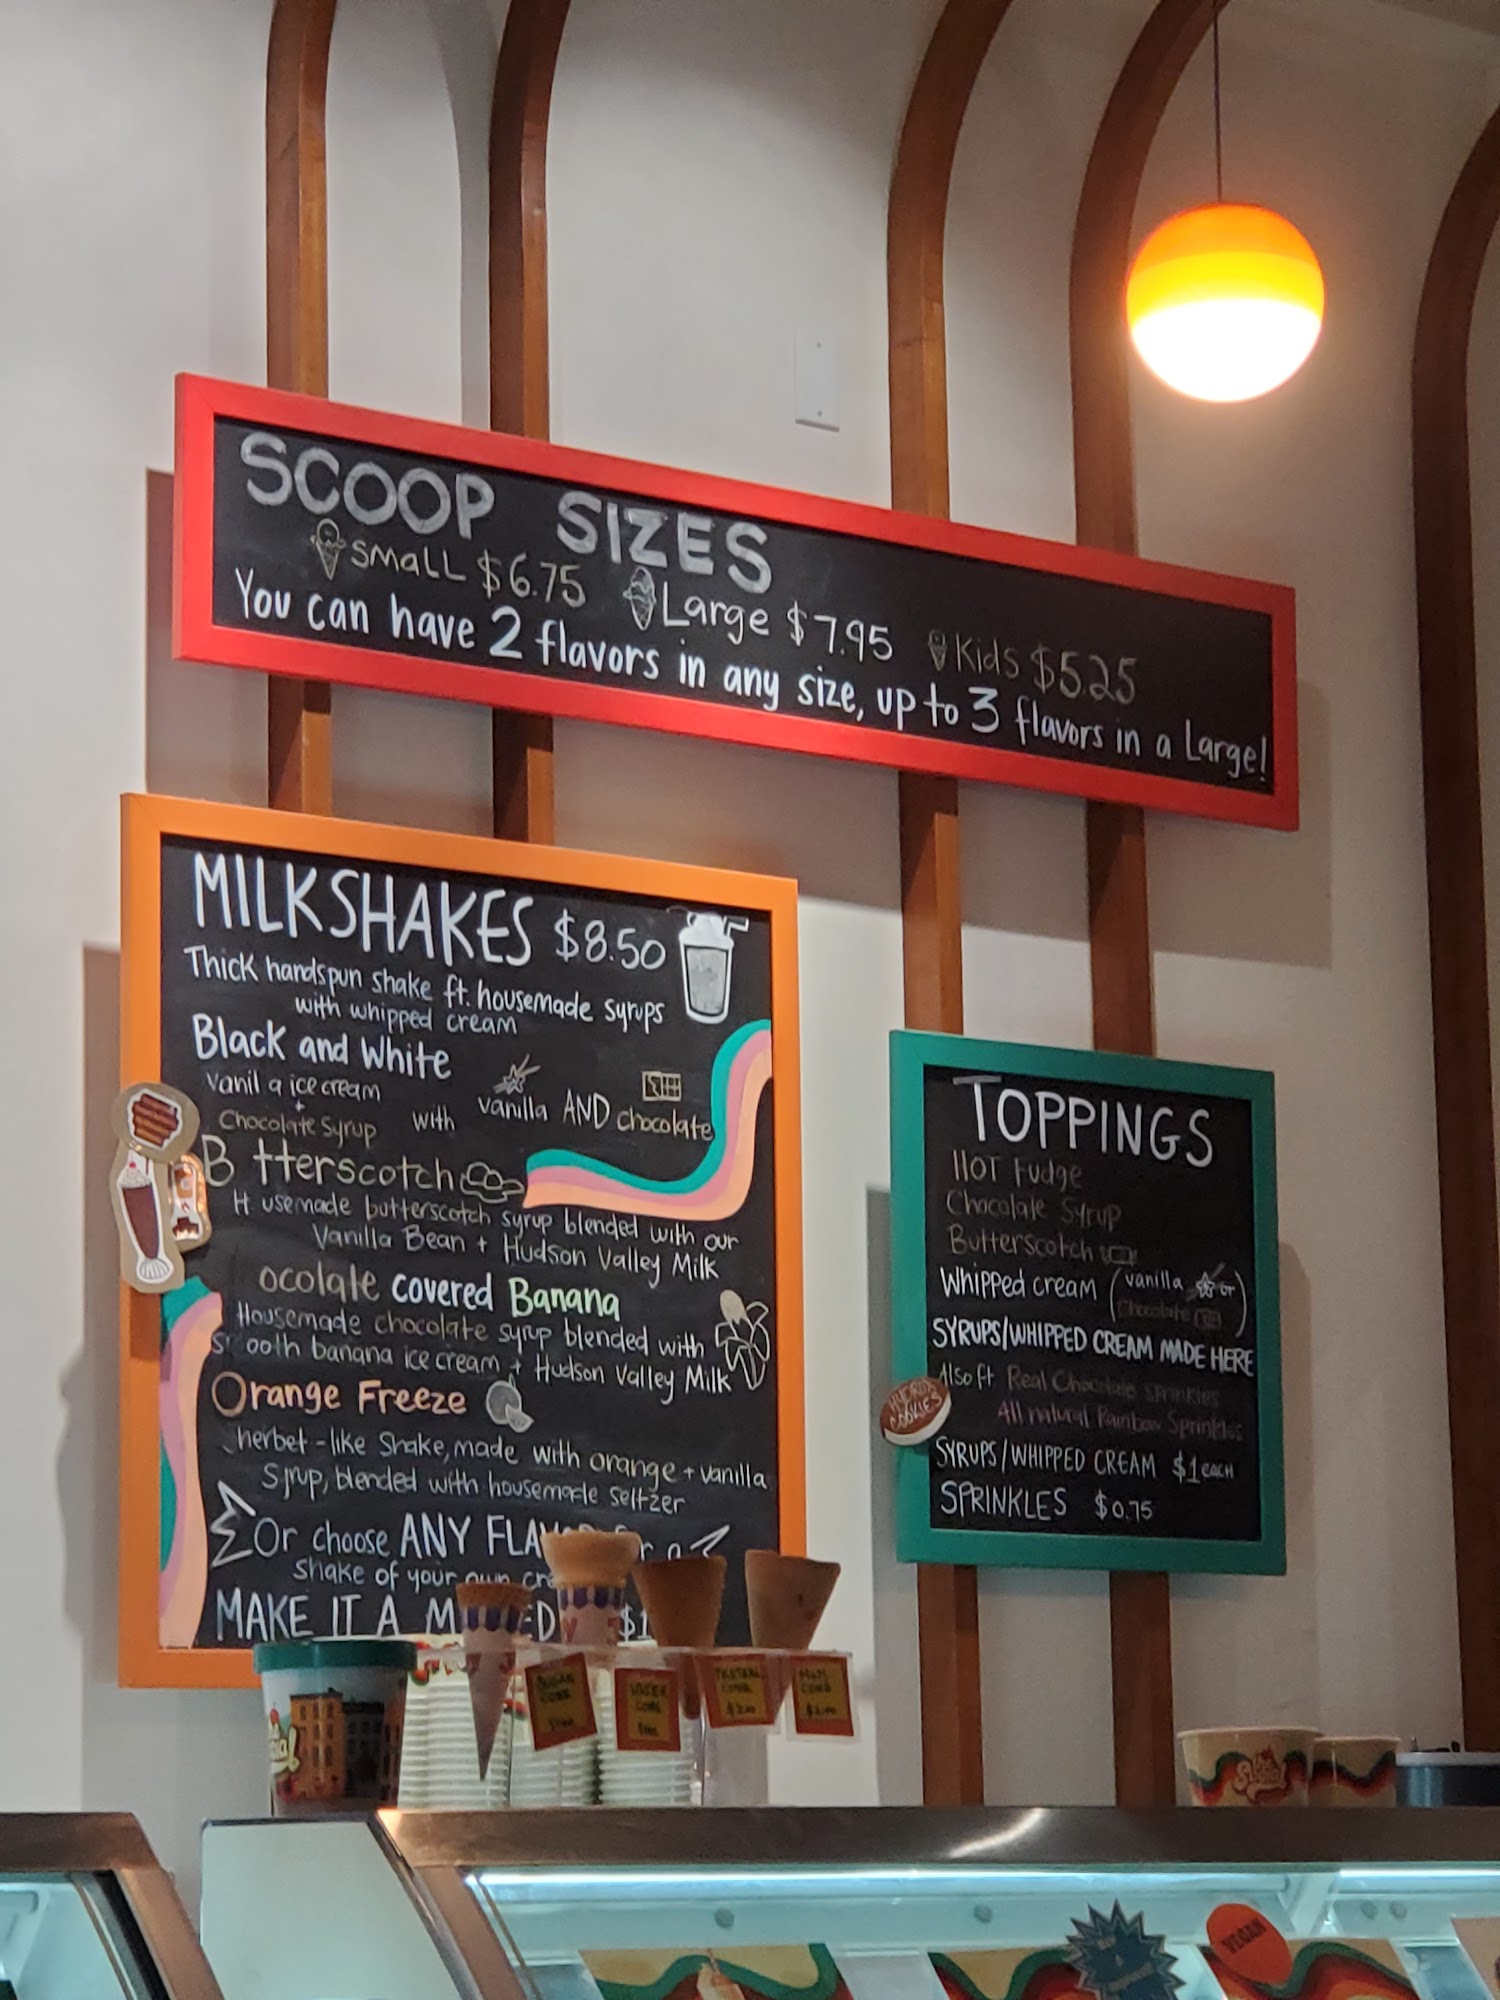 SCOOP SIZES
SMALL $6.75 Large $7.95 Kids $5.25
You can have 2 flavors in any size, up to 3 flavors in a Large!
MILKSHAKES $8.50
Thick handspun shake ft. housemade syrups
with whipped cream
Black and White
Vanil a ice cream
+
Chocolate Syrup with vanilla AND chocolate
B tterscotch
H usemade butterscotch syrup blended with our
Vanilla Bean + Hudson Valley Milk
ocolate covered Banana
Housemade chocolate syrup blended with
S ooth banana ice cream + Hudson Valley Milk
Orange Freeze
herbet-like Shake, made with orange + vanilla
Syrup, blended with housemade seltzer
Or choose ANY FLAV
Shake of your own cre
MAKE IT A M ED $1
TOPPINGS
HOT Fudge
Chocolate Syrup
Butterscotch
Whipped cream (vanilla or
Chocolate)
SYRUPS/WHIPPED CREAM MADE HERE
Also ft. Real Chocolate sprinkles
All natural Rainbow Sprinkles
SYRUPS/WHIPPED CREAM $1 EACH
SPRINKLES $0.75
COOKIES
SUGAR
CONE
CONE
CONE
$2.00
CONE
$2.00
VEGAN